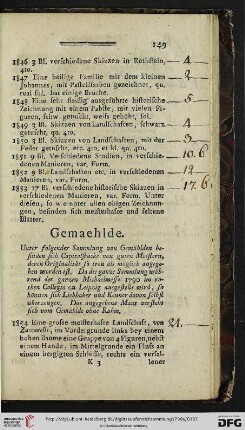 149
1846 3 Bl. verschiedene Skizzen in Rothstein, 4
4to.
1847 Eine heilige Familie mit dem kleinen 2
Johannes, mit Pastellfarben gezeichnet, qu.
real fol. hat einige Bruche.
1848 Eine sehr fleissig ausgeführte historische 5
Zeichnung mit einem Pabste, mit vielen Figuren, schw. getuscht, weiss gehöht, fol.
1849 3 Bl. Skizzen von Landschaften, schwarz 4
getuscht, qu. 4to.
1850 3 Bl. Skizzen von Landschaften, mit der 3
Feder gemacht, etc. 4to. et kl. qu. 4to.
1851 9 Bl. Verschiedene Studien, in verschiedenen 10. 6
Manieren, var. Form.
1852 9 Bl. Landschaften etc. in verschiedenen 12
Manieren, var. Form.
1853 17 Bl. verschiedene historische Skizzen in 17. 6
verschiedenen Manieren, var. Form. Unter
diesen, so wie unter allen obigen Zeichnungen, befinden sich meisterhafte und seltene
Blätter.
Gemaehlde.
Unter folgender Sammlung von Gemählden befinden sich Capitalstücke von guten Meistern,
deren Originalität so treu als möglich angegeben worden ist. Da die ganze Sammlung während der ganzen Michaelmesse 1790 im rothen Collegio zu Leipzig ausgestellt wird, so
können sich Liebhaber und Kenner davon selbst
überzeugen. Das angegebene Maas versteht
sich vom Gemählde ohne Rahm.
1854 Eine grosse meisterhafte Landschaft, von 21.
im Vordergrunde links bey einem
hohen Baume eine Gruppe von 4 Figuren, nebst
einem Hunde, im Mittelgrunde ein Fluss an
einem bergigten Schlosse, rechts ein verfal-
K 3 lener